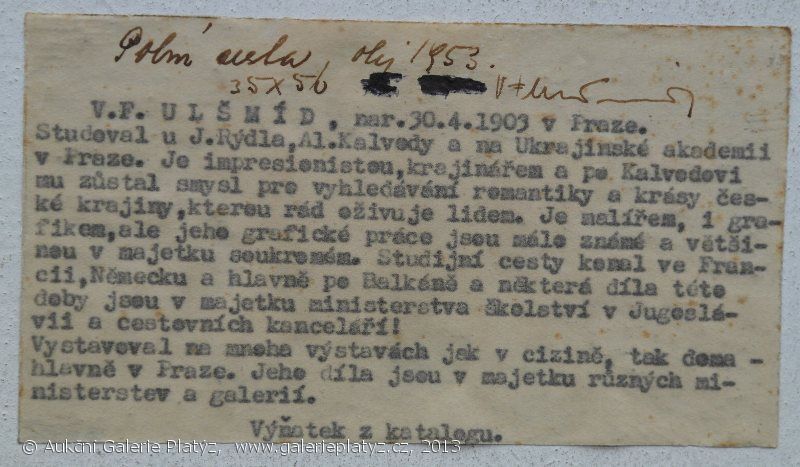 Polní cesta, olej 1953.
35x50
V.F. U L Š M Í D , nar.30.4.1903 v Praze.
Studoval u J.Rýdla,Al.Kalvody a na Ukrajinské akademii
v Praze. Je impresionistou,krajinářem a po Kalvodovi
mu zůstal smysl pro vyhledávání romantiky a krásy čes-
ké krajiny,kterou rád oživuje lidem. Je malířem, i gra-
fikem,ale jeho grafické práce jsou málo známé a větši-
nou v majetku soukromém. Studijní cesty konal ve Fran-
cii,Německu a hlavně po Balkáně a některá díla této
doby jsou v majetku ministerstva školství v Jugoslá-
vii a cestovních kanceláří!
Vystavoval na mnoha výstavách jak v cizině, tak doma -
hlavně v Praze. Jeho díla jsou v majetku různých mi-
nisterstev a galerií.
Výňatek z katalogu.
© Aukční Galerie Platýz, www.galerieplatyz.cz, 2013